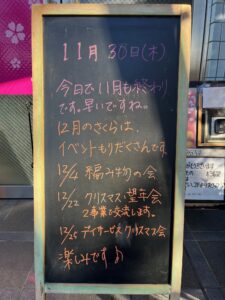 11月30日(木)
今日で11月も終わり
です。早いですね。
12月のさくらは、
イベントもりだくさんです。
12/4 幸福みかんの会
12/22 クリスマス・望年会
2事業で交流します。
12/25 デイサービスクリスマス会
楽しみです♪